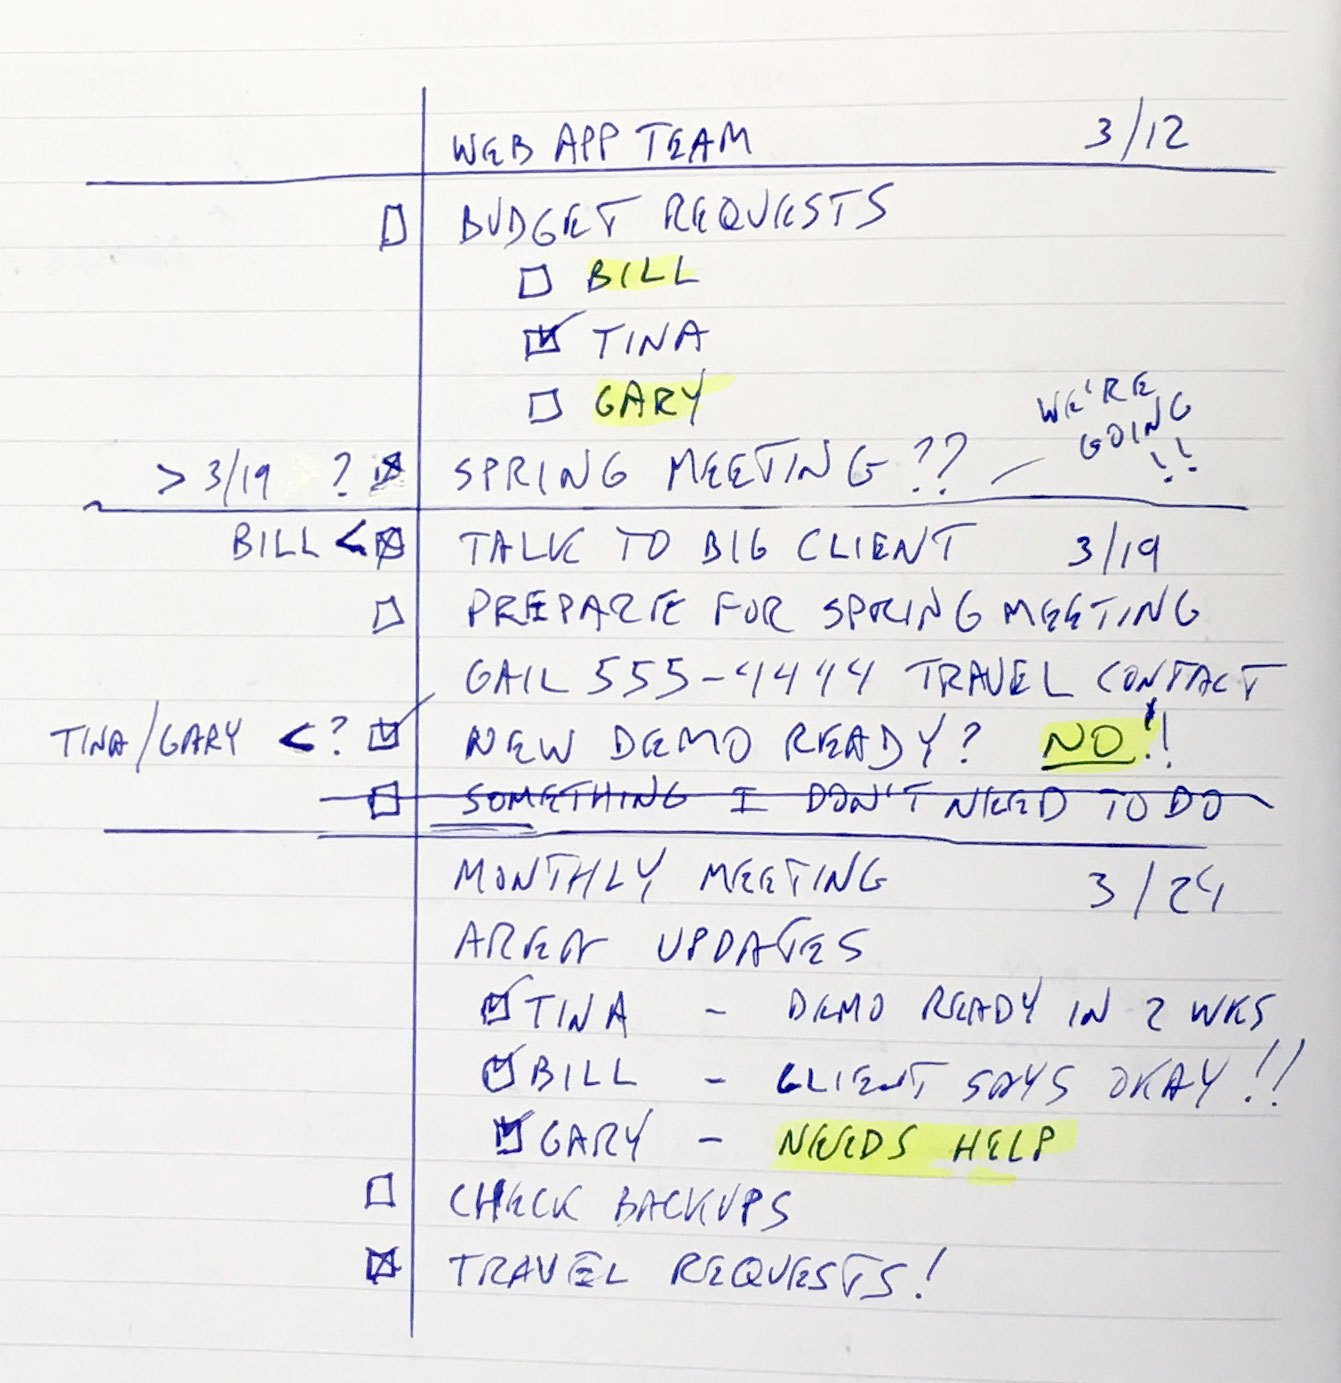 WEB APP TEAM 3/12
BUDGET REQUESTS
BILL
TINA
GARY
WE'RE
GOING
!!
> 3/19 ? SPRING MEETING??
BILL < TALK TO BIG CLIENT 3/19
PREPARE FOR SPRING MEETING
GAIL 555-4444 TRAVEL CONTACT
TINA/GARY <? NEW DEMO READY? NO!!
SOMETHING I DON'T NEED TO DO
MONTHLY MEETING 3/24
AREA UPDATES
TINA - DEMO READY IN 2 WKS
BILL - CLIENT SAYS OKAY!!
GARY - NEEDS HELP
CHECK BACKUPS
TRAVEL REQUESTS!